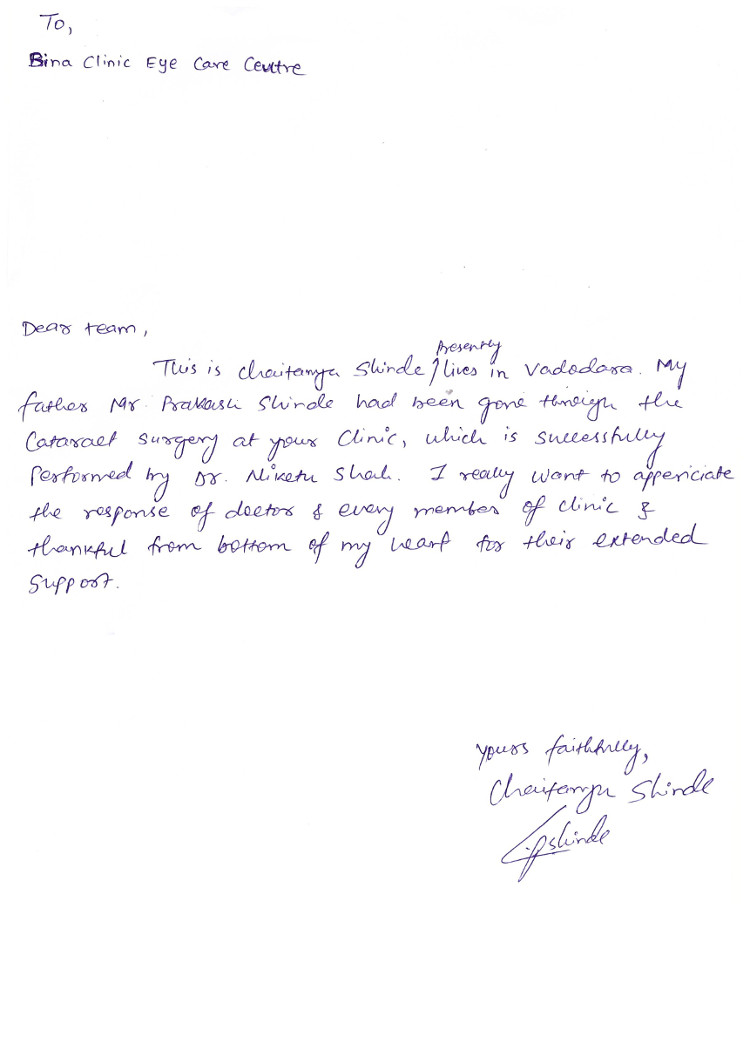 To,
Bina Clinic Eye Care Centre
Dear team,
This is Chaitanya Shinde presently lives in Vadodara. My
father Mr. Prakash Shinde had been gone through the
Cataract surgery at your Clinic, which is successfully
Performed by Dr. Niketu Shah. I really want to appericiate
the response of doctor & every member of clinic &
thankful from bottom of my heart for their extended
Support.
Yours faithfully,
Chaitanya Shinde
Cpshinde